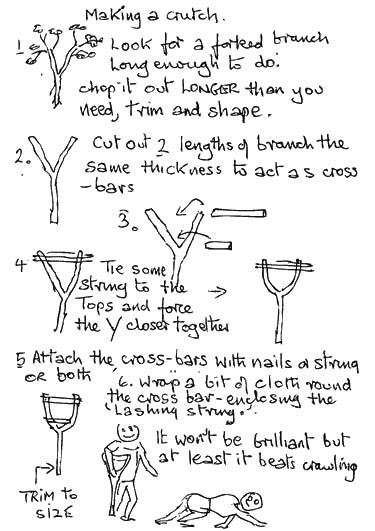 Making a crutch.
1 Look for a forked branch
long enough to do.
chop it out LONGER than you
need, trim and shape.
2. Cut out 2 lengths of branch the
same thickness to act as cross
-bars
3.
4 Tie some
string to the
Tops and force
the Y closer together
5 Attach the cross-bars with nails or string
OR both
6. wrap a bit of cloth round
the cross bar - enclosing the
lashing string.
It won't be brilliant but
at least it beats crawling
TRIM to
SIZE